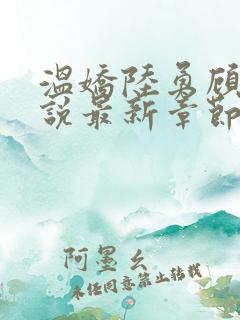 温嬌陸勇顧
說最新章節
阿墨幺
未經同意禁止轉載